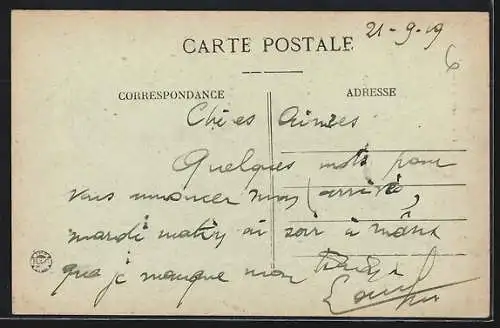 21-9-19
CARTE POSTALE
CORRESPONDANCE
ADRESSE
Chères Aimées
Quelques mots pour
vous annoncer mon arrivée,
mardi matin ou soir à moins
que je manque mon